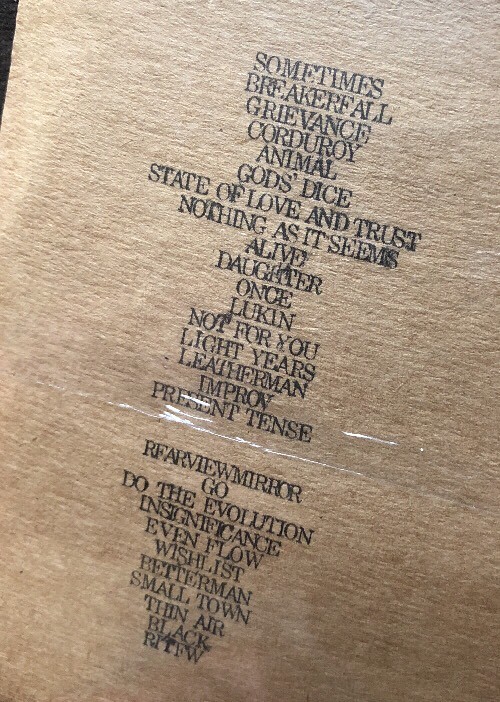 SOMETIMES
BREAKERFALL
GRIEVANCE
CORDUROY
ANIMAL
GODS' DICE
STATE OF LOVE AND TRUST
NOTHING AS IT SEEMS
ALIVE
DAUGHTER
ONCE
LUKIN
NOT FOR YOU
LIGHT YEARS
LEATHERMAN
IMPROV
PRESENT TENSE
REARVIEWMIRROR
GO
DO THE EVOLUTION
INSIGNIFICANCE
EVEN FLOW
WISHLIST
BETTERMAN
SMALL TOWN
THIN AIR
BLACK
RITFW